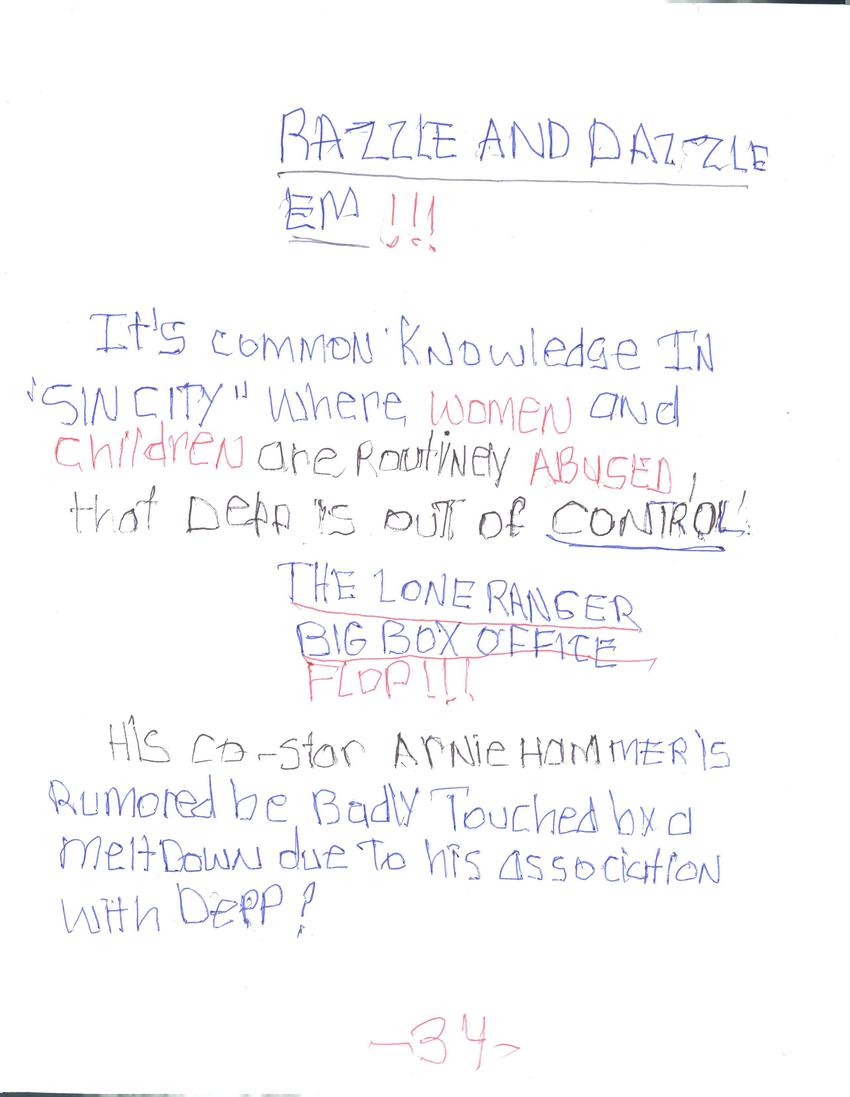 RAZZLE AND DAZZLE
EM !!!
It's common Knowledge IN
"SIN CITY" where WOMEN and
children are Routiney ABUSED,
that Depp is OUT OF CONTROL!
THE LONE RANGER
BIG BOX OFFICE
FLOP!!!
His co-star ARNie HAMMER is
Rumored be Badly Touched by a
meltDown due To his Association
with DEPP?
-34-